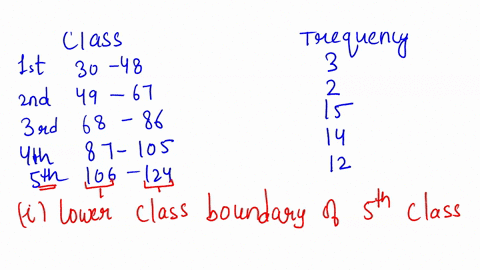 Class Trequency
1st 30 - 48 3
2nd 49 - 67 2
3rd 68 - 86 15
4th 87 - 105 14
5th 106 - 124 12
(i) lower class boundary of 5th class